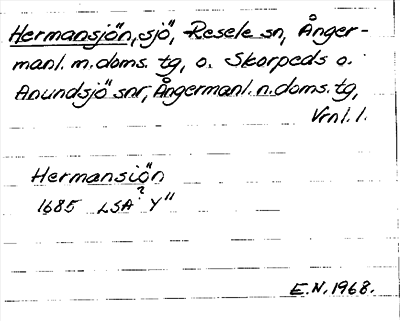 Hermansjön, sjö, Resele sn, Ånger-
manl. m. doms. tg, o. Skorpeds o.
Anundsjö snr, Ångermanl. n. doms. tg,
Vrnl. l.
Hermansiön
?
1685 LSA Y"
E.N. 1968.